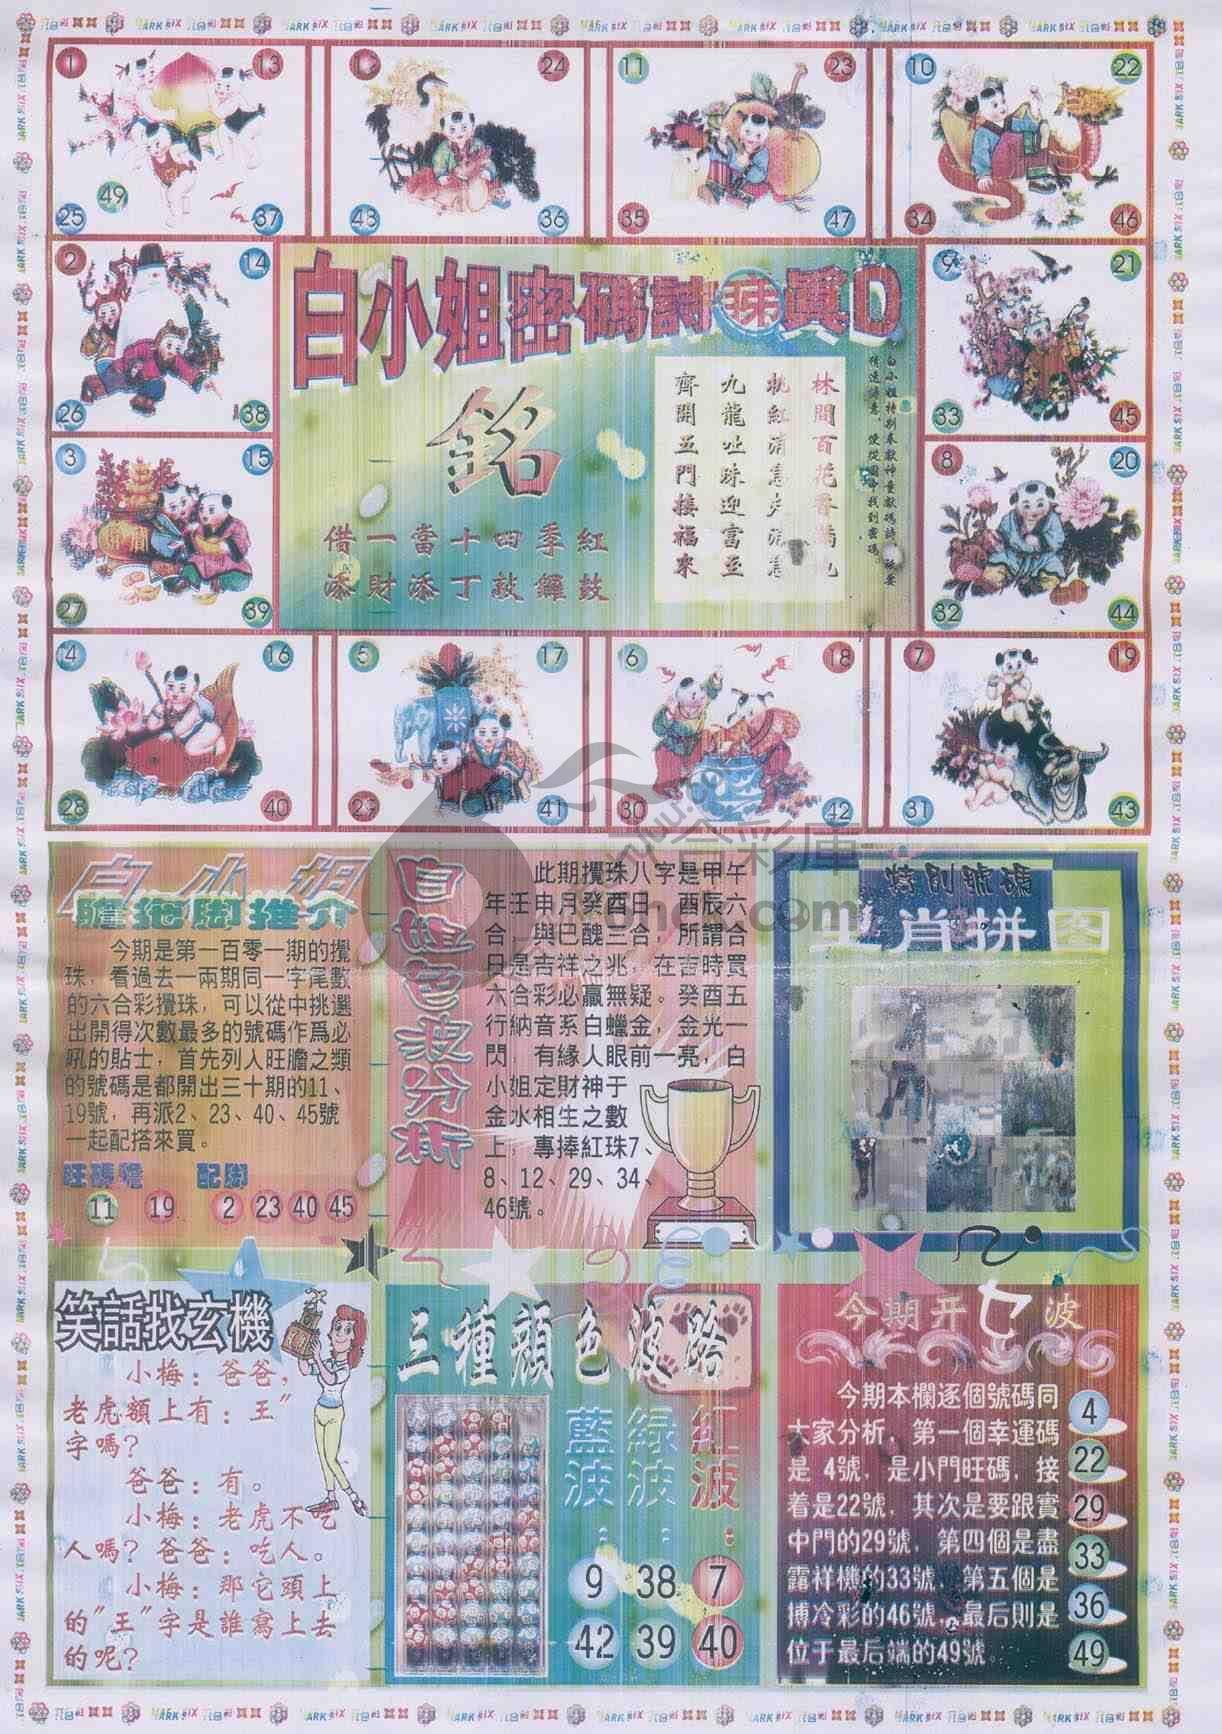 1
13
49
25
37
24
48
36
11
23
35
47
10
22
34
46
2
14
26
38
白小姐密碼詩珠真D
銘
借一當十四季紅
添財添丁敲鑼鼓
林間百花香滿
九龍吐珠迎富至
齊開五門接福來
9
21
33
45
3
15
27
39
8
20
32
44
4
16
28
40
5
17
29
41
6
18
30
42
7
19
31
43
白小姐
膽拖脚推介
今期是第一百零一期的攪
珠，看過去一兩期同一字尾數
的六合彩攪珠，可以從中挑選
出開得次數最多的號碼作爲必
吼的貼士，首先列入旺膽之類
的號碼是都開出三十期的11、
19號，再派2、23、40、45號
一起配搭來買。
旺碼膽 配脚
11 19 2 23 40 45
白姐色波分析
此期攪珠八字是甲午
年壬申月癸酉日，酉辰六
合，與巳醜三合，所謂合
日是吉祥之兆，在吉時買
六合彩必贏無疑。癸酉五
行納音系白蠟金，金光一
閃，有緣人眼前一亮，白
小姐定財神于
金水相生之數
上，專捧紅珠7、
8、12、29、34、
46號。
特別號碼
生肖拼图
笑話找玄機
小梅：爸爸，
老虎額上有：王"
字嗎？
爸爸：有。
小梅：老虎不吃
人嗎？爸爸：吃人。
小梅：那它頭上
的"王"字是誰寫上去
的呢？
三種顔色波路
藍波： 緑波： 紅波：
9 38 7
42 39 40
今期开七波
今期本欄逐個號碼同
大家分析，第一個幸運碼
是 4號，是小門旺碼，接
着是22號，其次是要跟實
中門的29號，第四個是盡
露祥機的33號，第五個是
搏冷彩的46號，最后則是
位于最后端的49號。
4
22
29
33
36
49